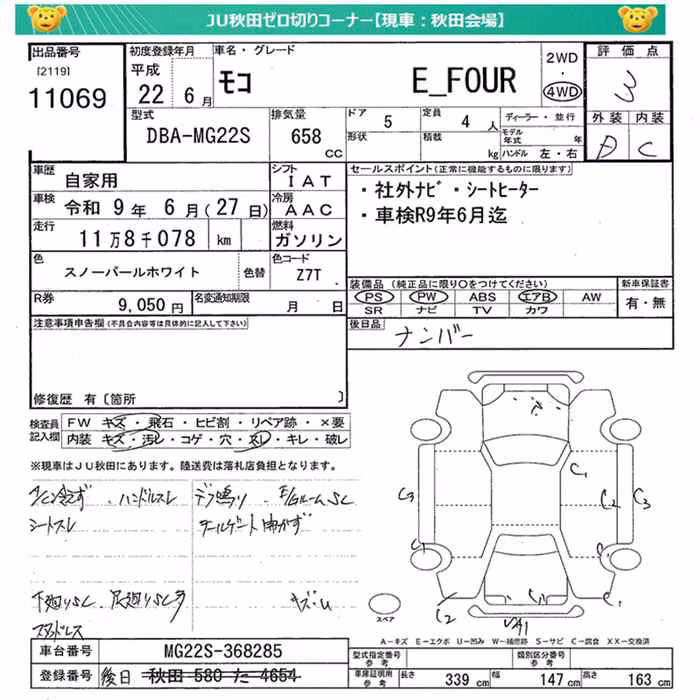 JU秋田ゼロ切りコーナー【現車：秋田会場】
出品番号
[2119]
11069
初度登録年月
平成
22 年 6 月
車名・グレード
モコ
E_FOUR
2WD
・
4WD
評価点
3
外装
内装
A
C
型式
DBA-MG22S
排気量
658
cc
ドア
5
定員
4 人
形状
積載
kg
ディーラー・並行
モデル
年式 年
ハンドル 左・右
車歴
自家用
シフト
IAT
車検
令和 9 年 6 月(27 日)
冷房
AAC
走行
11万8千078 km
燃料
ガソリン
色
スノーパールホワイト
色替
色コード
Z7T
セールスポイント(正常に機能するものに限ります)
・社外ナビ・シートヒーター
・車検R9年6月迄
R券
9,050 円
名変通知期限
月 日
装備品(純正品に限り○をつけてください)
PS
PW
ABS
エアB
AW
SR
ナビ
TV
カワ
新車保証書
有・無
後日品
ナンバー
注意事項申告欄(不具合内容等は具体的に記入して下さい)
修復歴 有〔箇所 〕
検査員
記入欄
FW キズ・飛石・ヒビ割・リペア跡・×要
内装 キズ・汚レ・コゲ・穴・スレ・キレ・破レ
※現車はJU秋田にあります。陸送費は落札店負担となります。
A/C冷えず
ハンドルスレ
デフ鳴り
E/GルームSC
シートスレ
テールゲート開かず
下廻りSC
足廻りSC多
キズ・U
スタッドレス
C1
C3
C2
C3
C1
C2
C1
スペア
A－キズ E－エクボ U－凹み W－補修跡 S－サビ C－腐食 XX－交換済
車台番号
MG22S-368285
登録番号
後日
秋田 580 た 4654
型式指定番号
参考
類別区分番号
参考
車庫証明用
参考
長さ 339 cm
幅 147 cm
高さ 163 cm